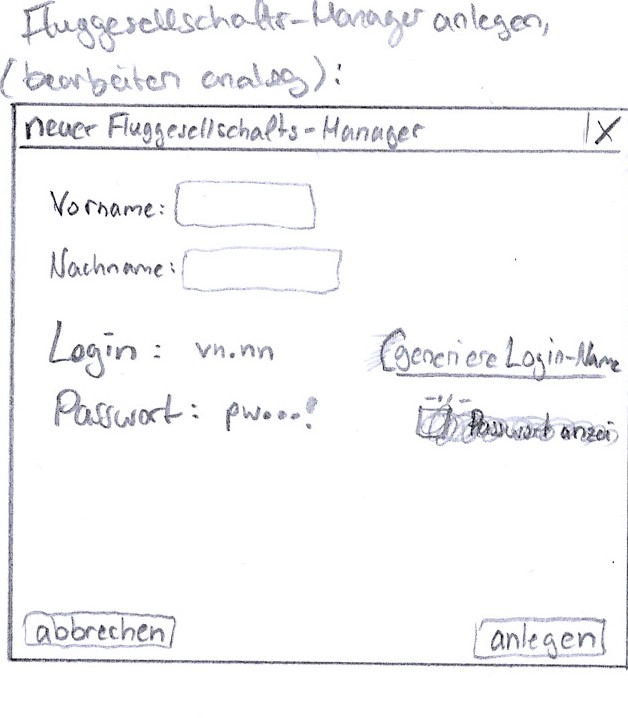 Fluggesellschafts-Manager anlegen,
(bearbeiten analog):
neuer Fluggesellschafts-Manager X
Vorname:
Nachname:
Login: vn.nn generiere Login-Name
Passwort: pw...! -"-
Passwort anzei
abbrechen anlegen